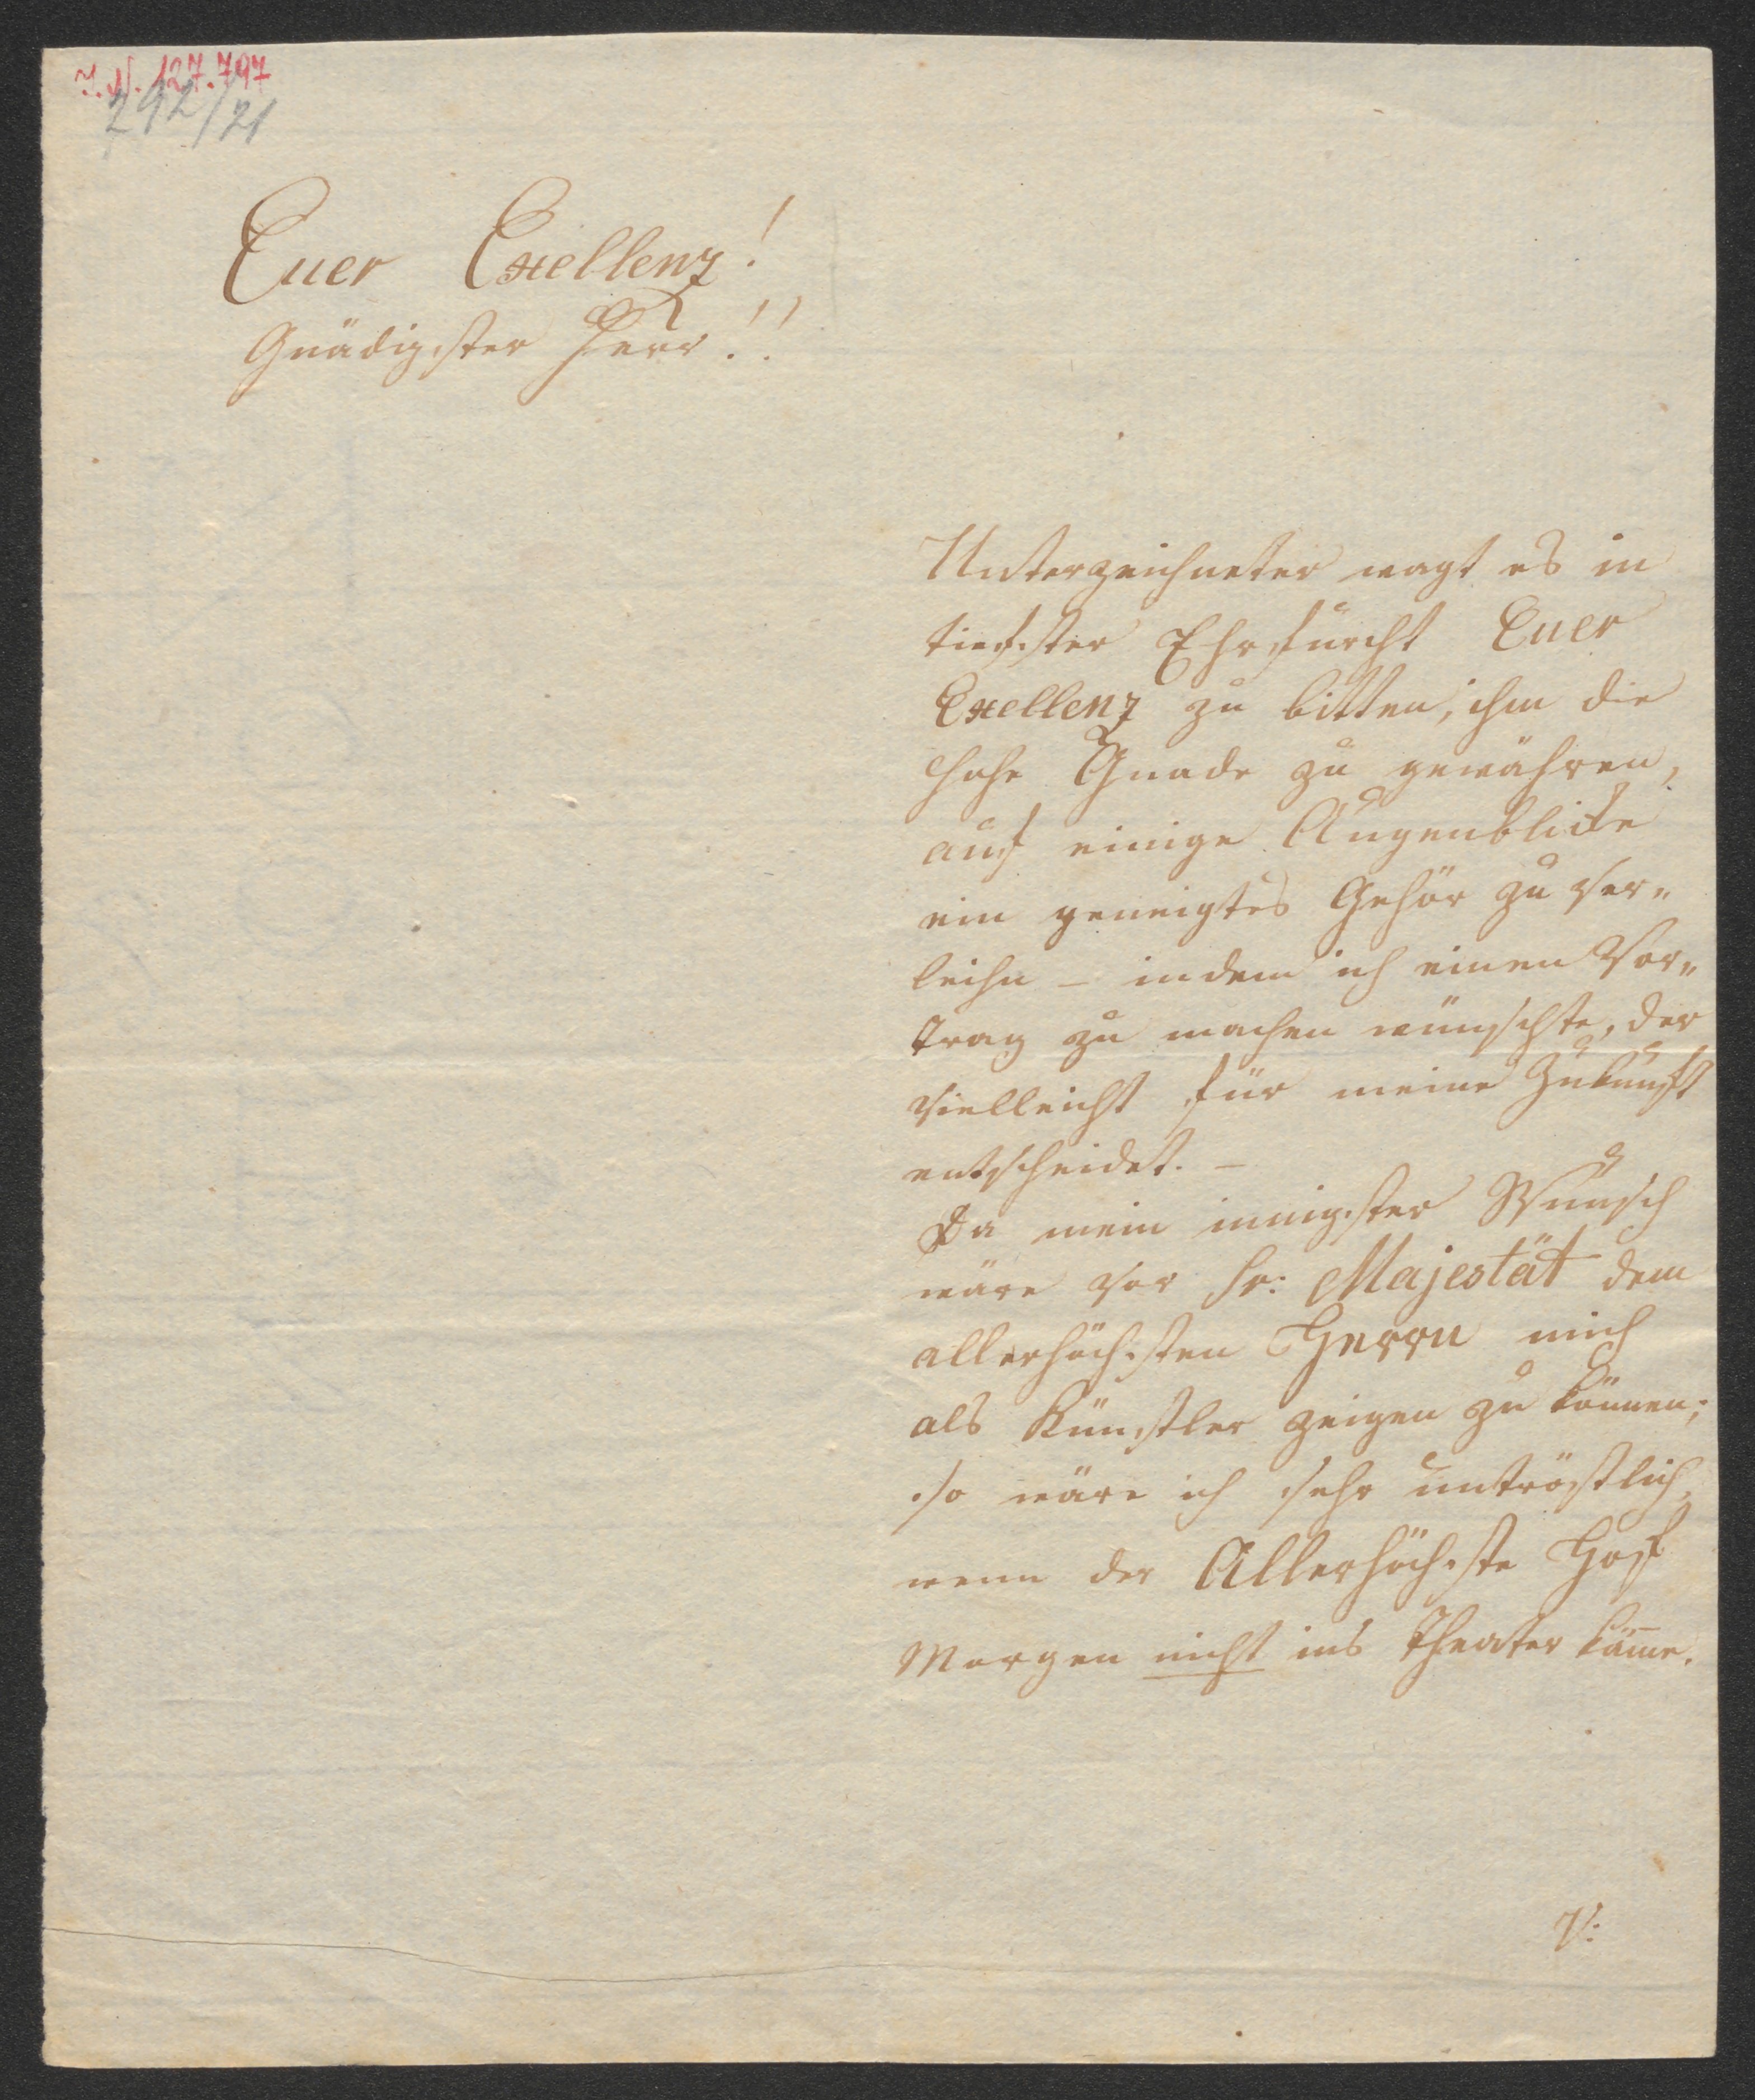 I.N. 127.797
292/21
Euer Exellenz!
Gnädigster Herr!!
Unterzeichneter wagt es in
tiefster Ehrfurcht Euer
Exellenz zu bitten, ihm die
hohe Gnade zu gewähren,
auf einige Augenblicke
ein geneigtes Gehör zu ver„
leihn – indem ich einen Vor„
trag zu machen wünschte, der
vielleicht für meine Zukunft
entscheidet. –
Da mein innigster Wunsch
wäre vor Sr: Majestät dem
allerhöchsten Herrn mich
als Künstler zeigen zu können;
so wäre ich sehr untröstlich,
wenn der Allerhöchste Hof
Morgen nicht ins Theater käme.
V: